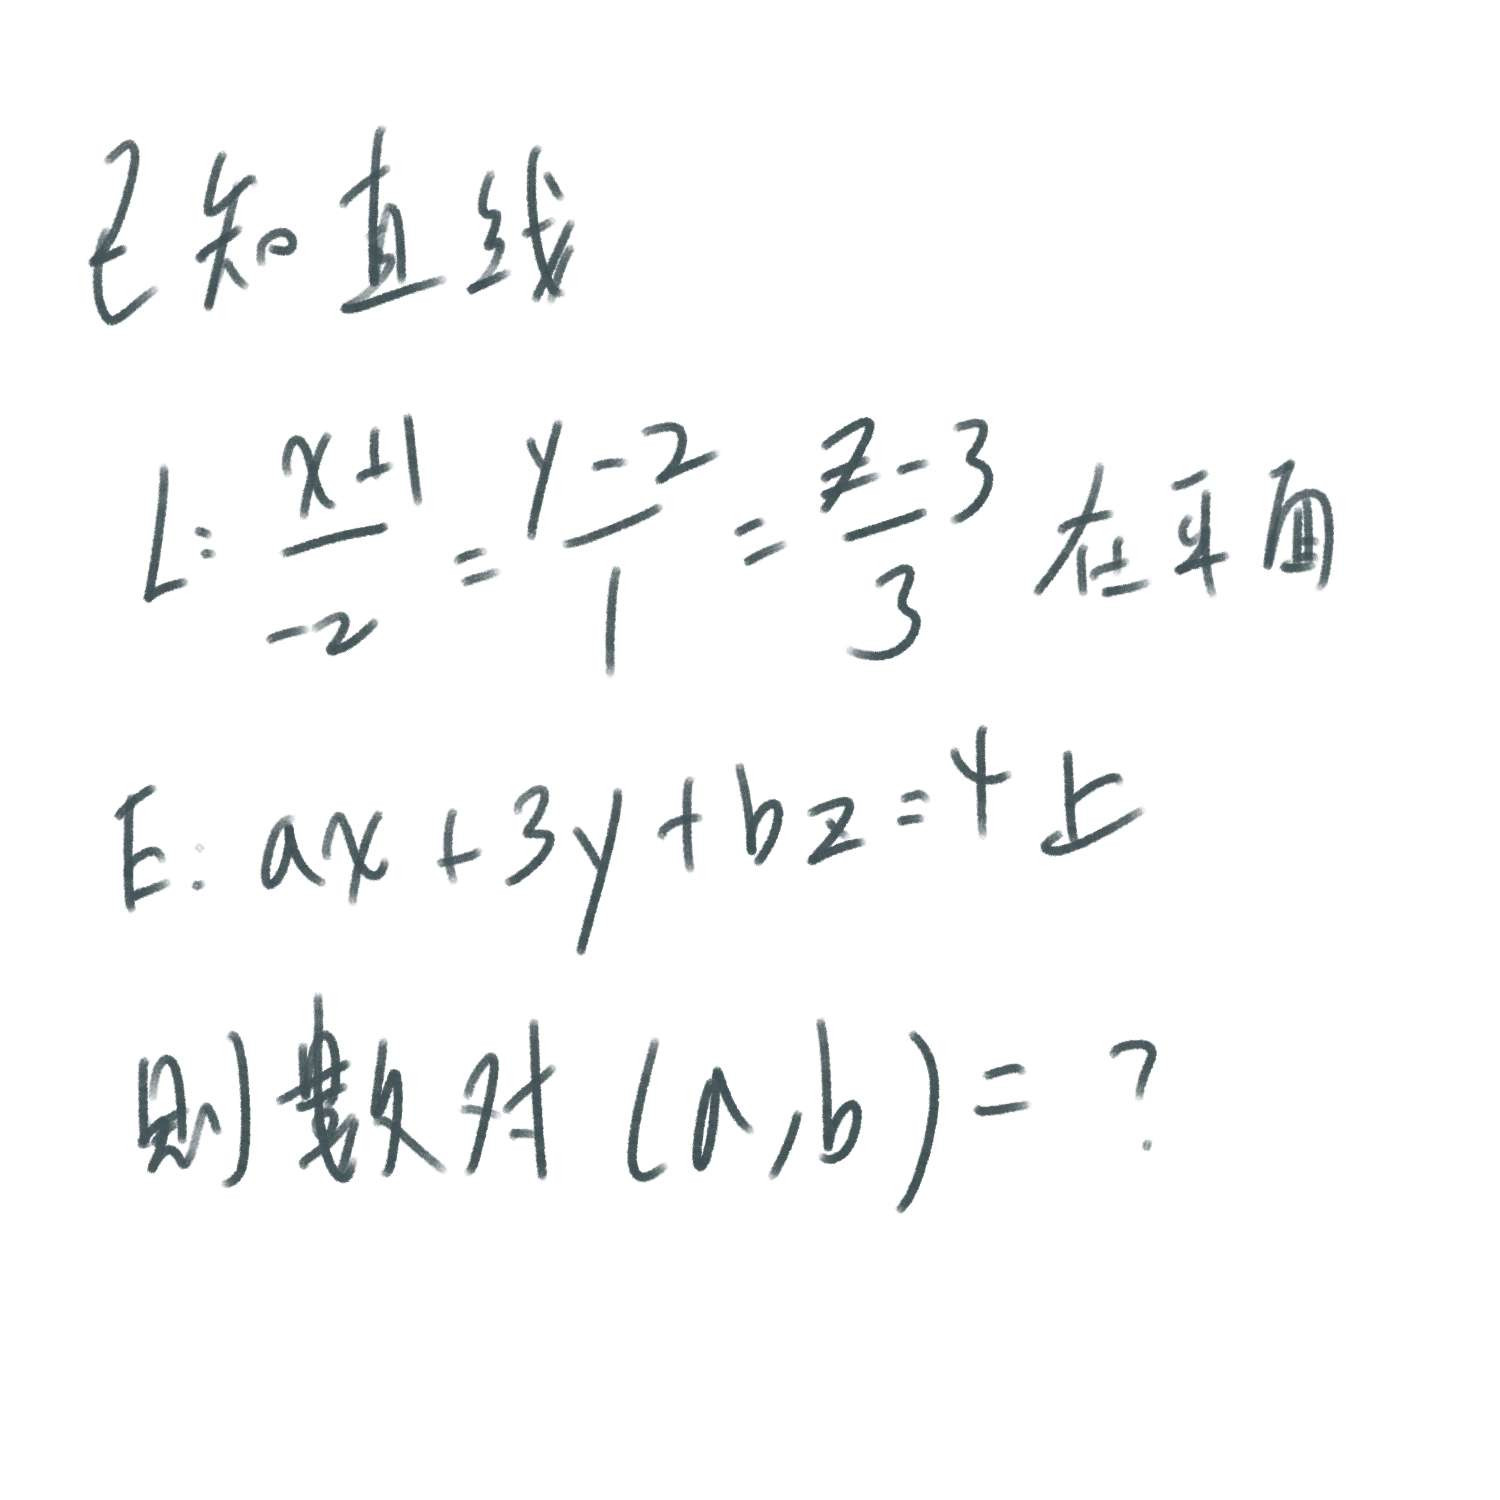 已知直线
L: \frac{x+1}{-2} = \frac{y-2}{1} = \frac{z-3}{3} 在平面
E: ax+3y+bz=4上
则数对(a,b)=?